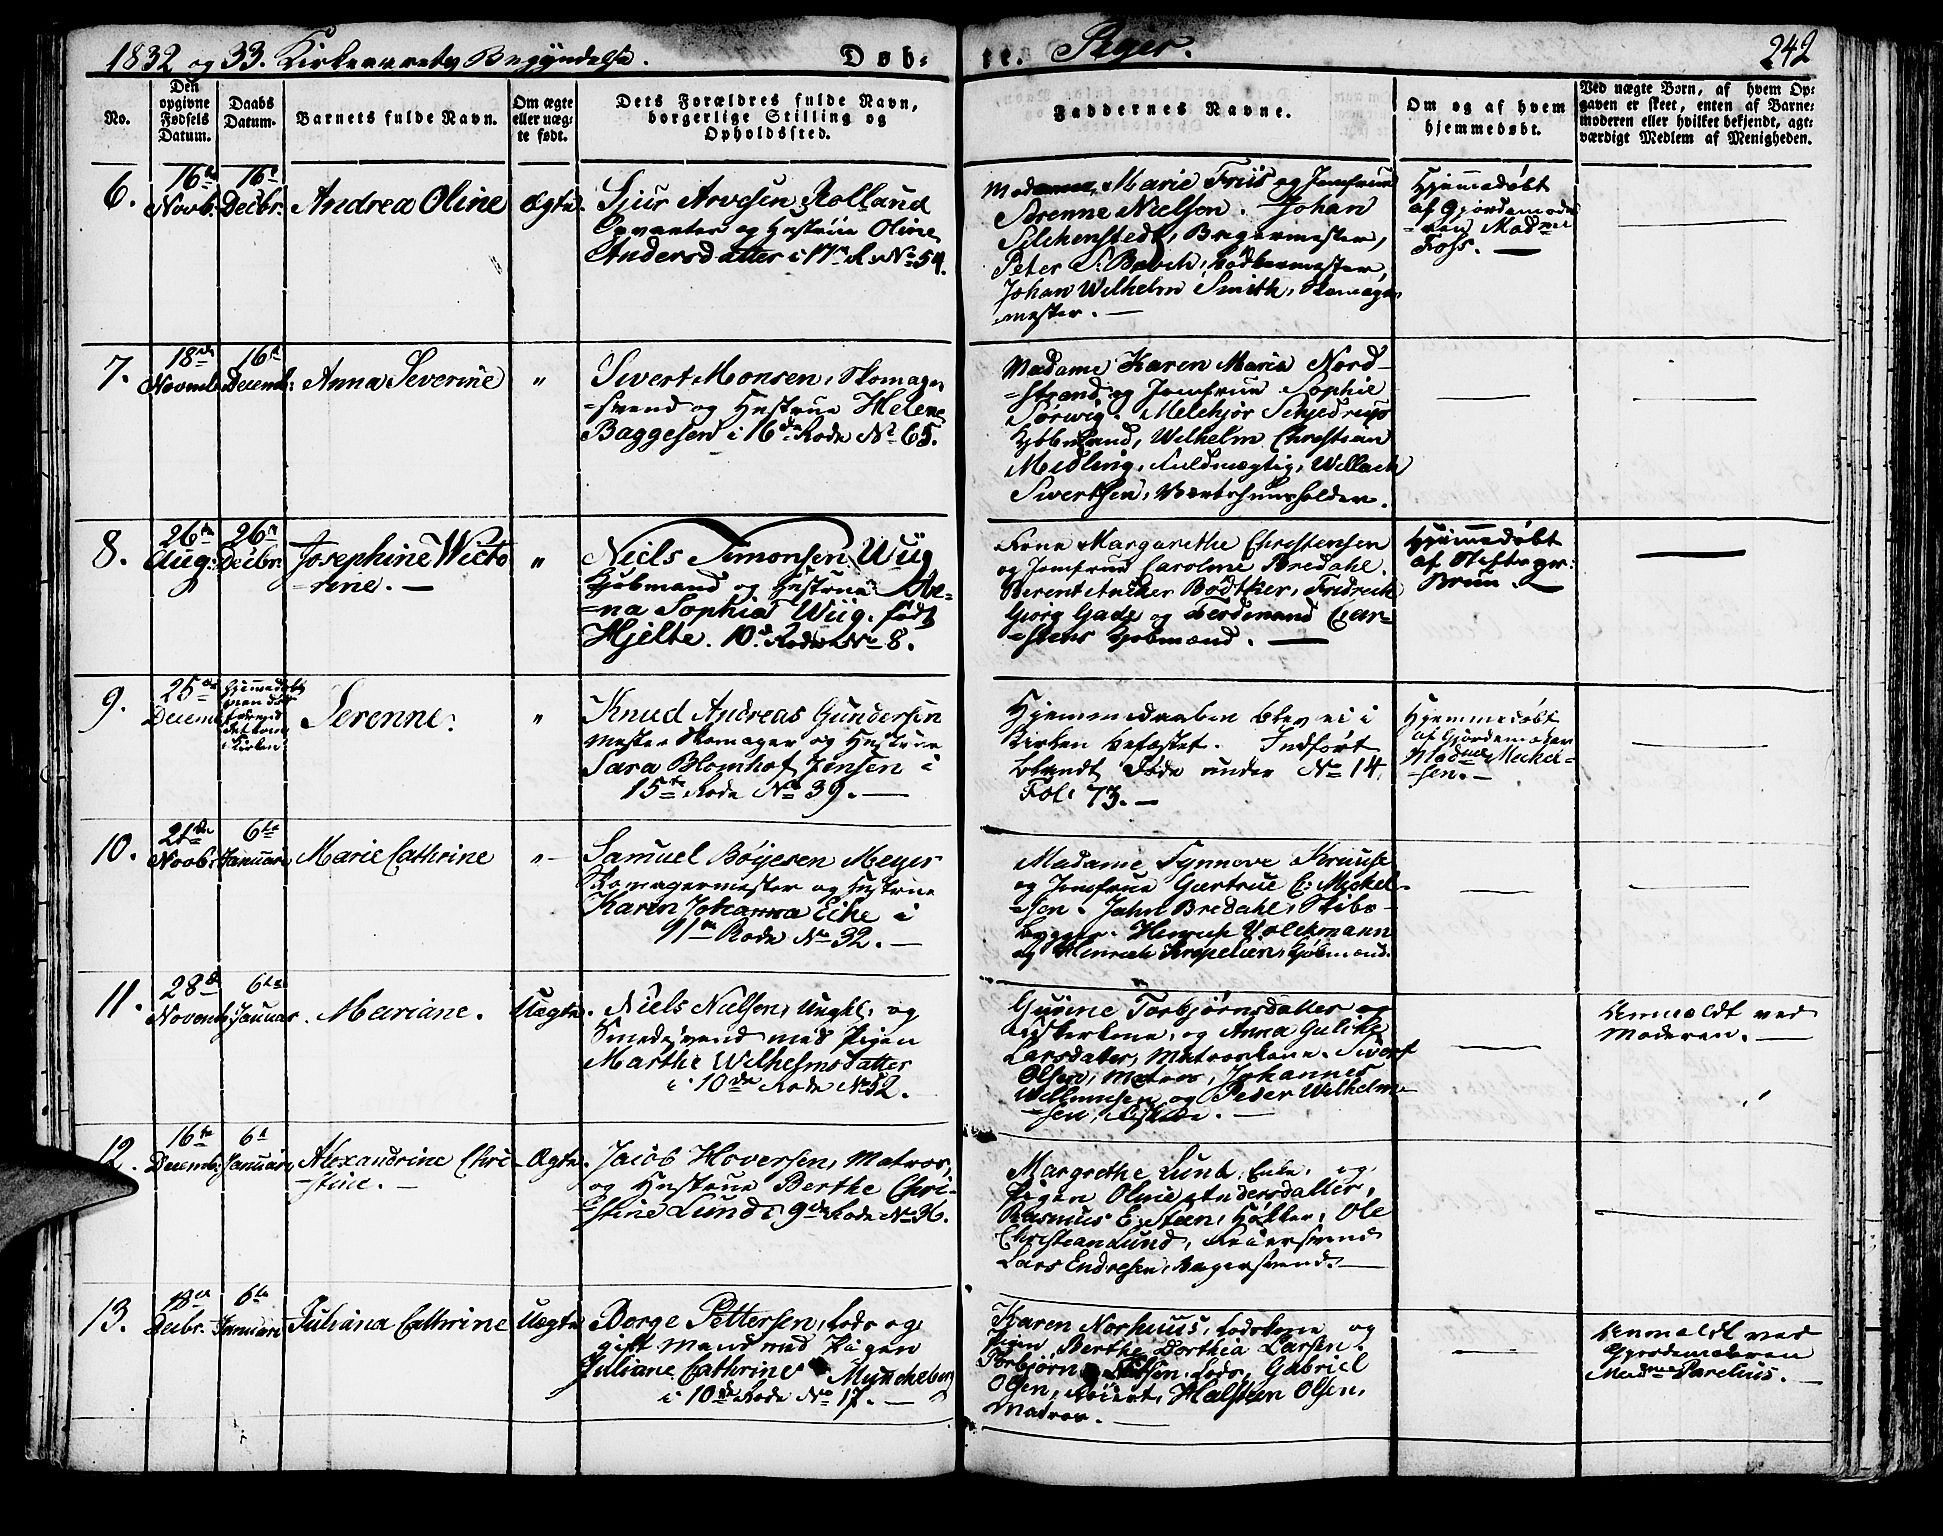 1832 og 33. Kirkeaarets Begyndelse.
Døb-
te. Piger.
242
No.
Den opgivne Fødsels Datum.
Daabs Datum.
Barnets fulde Navn.
Om ægte eller uæg-te født.
Dets Forældres fulde Navn, borgerlige Stilling og Opholdssted.
Faddernes Navne.
Om og af hvem hjemmedøbt.
Ved uægte Børn, af hvem Op-
gaven er skeet, enten af Barne-
moderen eller hvilket bekjendt, agt-
værdigt Medlem af Menigheden.
6.
16de Novb.
16de Decbr.
Andrea Oline
Ægte.
Sjur Arvesen Rolland
Opvarter og Hustrue Oline
Andersdatter i 17de R. No 54.
Madame Marie Friis og Jomfrue
Sørenne Nielsen. Johan
Selchenstedt, Bagermester,
Peter S. Busch, Bødkermester,
Johan Wilhelm Smith, Skomager
mester. —
Hjemmedøbt
af Gjordemode
-ren Madme
Foss. —
7.
18de Novemb.
16de Decemb.
Anna Severine
"
Sivert Monsen, Skomager
-svend og Hustrue Helene
Baggesen i 16de Rode No 65.
Madame Karen Maria Nord-
-strand og Jomfrue Sophie
Sørwig. Melchjor Schjedrup
Kjøbmand, Wilhelm Christian
Midling, Fuldmægtig, Willach
Sivertsen, Vertshuusholder.
8.
26de Aug.
26de Decbr.
Josephine Victo
-rine. —
"
Niels Simonsen Wiig
Kjøbmand og Hustrue An-
-na Sophia Wiig, født
Hjelte. 10de Rode No 8.
Kone Margarethe Christensen
og Jomfrue Caroline Bredahl.
Berent Ancher Bødtker, Fridrich
Gjørg Gade og Ferdinand Car-
-stens Kjøbmænd. —
Hjemmedøbt
af Stiftspr:
Brun.
9.
25de Decemb.
Hjemmedøbt
men døde
førend
det kom
i Kirken
Serenne.
"
Knud Andreas Gundersen
mester Skomager og Hustrue
Sara Blomhof Jensen i
15de Rode No 39. —
Hjemmedaaben blev ei i
Kirken befæstet. Indført
blandt Døde under No 14.
Fol: 73. —
Hjemmedøbt
af Gjordemoderen
Madme Mickel-
-sen. —
10.
21de Novb.
6te Januari
Marie Cathrine
"
Samuel Bøyesen Meyer
Skomagermester og Hustrue
Karen Johanna Eike i
91de Rode No 32. —
Madame Synnove Krause
og Jomfrue Giertrue C: Mickel-
-sen. Jahn Bredahl, Skibs-
bygger. Hinrich Volckmann
og Henrich Kropelien, Kjøbmænd.
11.
28de Novemb.
6te Januar
Mariane.
Uægte.
Niels Nielsen, Ungkl. og
Smedesvend med Pigen
Marthe Wilhelmsdatter
i 10de Rode No 52.
Gurine Torbjørnsdatter og
Fiskerkone, og Anna Gulike
Larsdatter, Matroskone. Sivert
Olsen, Matros, Johannes
Willumsen og Peder Wilhelm-
-sen, Fiskere. —
Anmeldt ved
Moderen. —
12.
16de Decemb.
6te Januari
Alexandrine Chri-
-stine. —
Ægte.
Jacob Hoversen, Matros,
og Hustrue Berthe Chri-
stine Lund i 9de Rode No 36.
Margrethe Lund, Enke, og
Pigen Olive Andersdatter,
Rasmus E. Steen, Høkker, Ole
Christian Lund, Feiersvend
Lars Endresen, Bagersvend. —
13.
18de Decbr.
6te Januari
Juliana Cathrine
Uægte
Børge Pettersen, Lods og
gift Mand med Pigen
Juliane Cathrine Muncheberg
i 10de Rode No 17. —
Karen Norhuus, Lodskone og
Pigen Berthe Dorthia Larsen.
Torbjørn Tollefsen, Lods, Gabriel
Olsen, Røiert, Halsten Olsen,
Matros. —
Anmeldt ved
Gjordemoderen
Madme Parelius. —